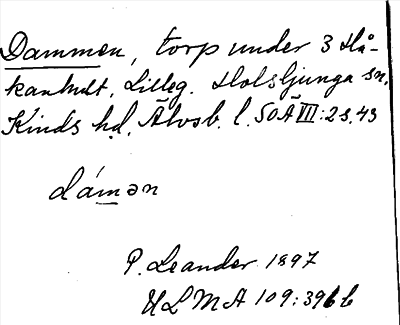 Dammen, torp under 3 Hå-
kanhult, Lilleg. Holsljunga sn,
Kinds hd, Älvsb. l. SOÄ VII:2 s. 43
dámən
P. Leander 1897
ULMA 109:396 b